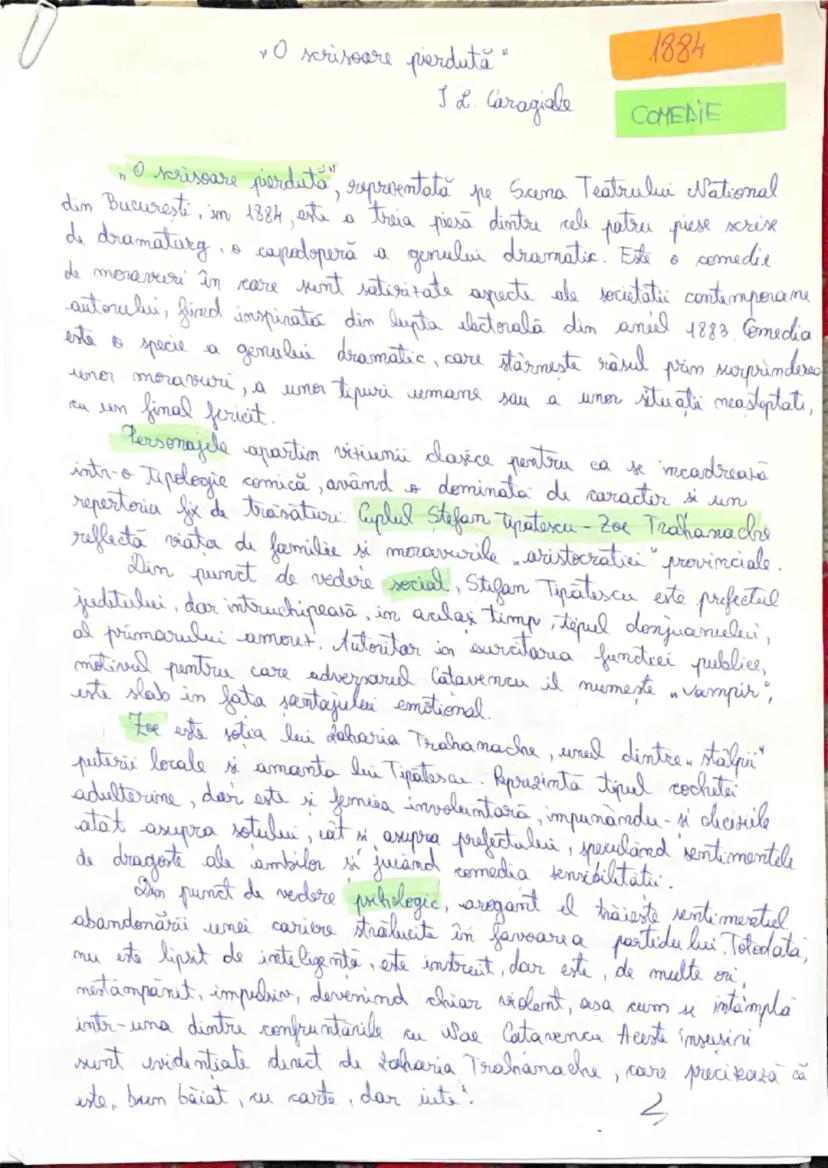 „O scrisoare pierdută"
1884
I L. Caragiale
COMEDIE
„O scrisoare pierdută", reprezentată pe Scena Teatrului National
din București, in 1884, este a treia piesă dintre cele patru piese scrise
de dramaturg, o capodoperă a genului dramatic. Este o comedie
de moravuri în care sunt satirizate aspecte ale societătii contemporane
autorului, fiind inspirată din lupta electorală din anul 1883. Comedia
este o specie a genului dramatic, care stârnește râsul prin surprinderea
unor moravuri, a unor tipuri umane sau a unor situatii neasteptate,
cu un final fericit.
Personajele apartin viziunii clasice pentru ca se incadrează
intr-o tipologie comică, având o dominată de caracter si un
repertoriu fix de trăsături. Cuplul Ștefan Tipătescu - Zoe Trahanache
reflectă viața de familie si moravurile „aristocratiei" provinciale.
Din punct de vedere social, Stefan Tipătescu este prefectul
judetului, dar intruchipează, in acelasi timp, tipul donjuanului,
al primarului amorez. Autoritar in exercitarea functiei publice,
motivul pentru care adversarul Catavencu il numeste „vampir",
este slab in fata șantajului emoțional.
Zoe este soția lui Zaharia Trahanache, unul dintre „stâlpii"
puterii locale si amanta lui Tipătescu. Reprezintă tipul cochetei
adulterine, dar este si femeia involuntară, impunându-si deciziile
atât asupra soțului, cât si asupra prefectului, speculând sentimentele
de dragoste ale ambilor si jucând comedia sensibilitatii.
Din punct de vedere psihologic, arogant el trăieste sentimentul
abandonării unei cariere strălucite în favoarea partidului. Totodată,
nu este lipsit de inteligență, este instruit, dar este, de multe ori,
nestămpănit, impulsiv, devenind chiar violent, asa cum se intâmplă
intr-una dintre confruntările cu Nae Catavencu. Aceste însusiri
sunt evidențiate direct de Zaharia Trahanache, care precizează că
este „bun băiat, cu carte, dar iute".
2